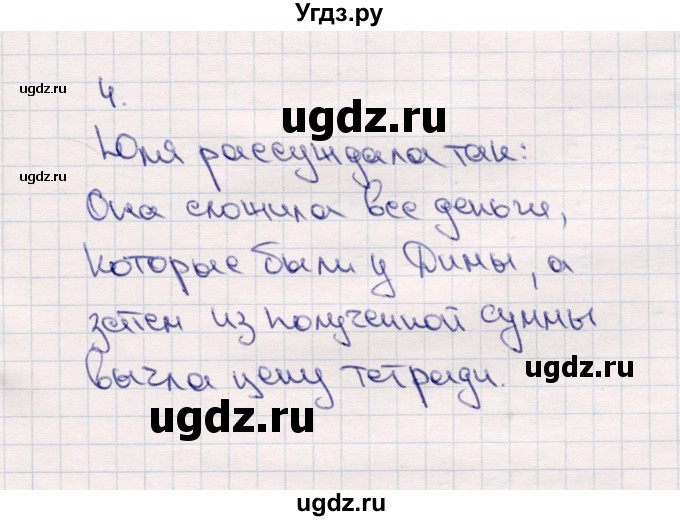 Угдз.ру
ugdz.ru
4.
ugdz.ru
Юля рассуждала так:
ugdz.ru
Она сложила все деньги,
которые были у Дины, а
затем из полученной суммы
ugdz.ru
вычла цену тетради.
ugdz.ru
ugdz.ru